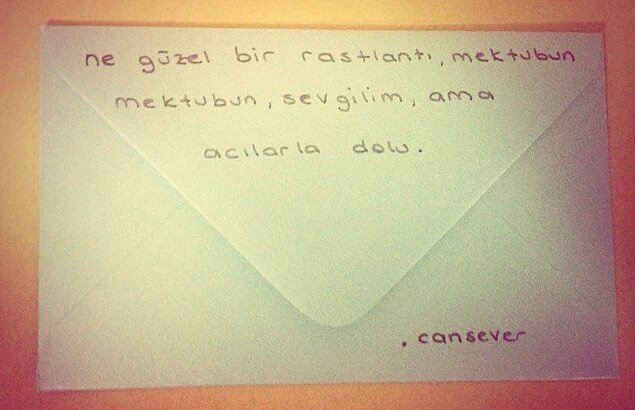 ne güzel bir rastlantı, mektubun
mektubun, sevgilim, ama
acılarla dolu.
. cansever